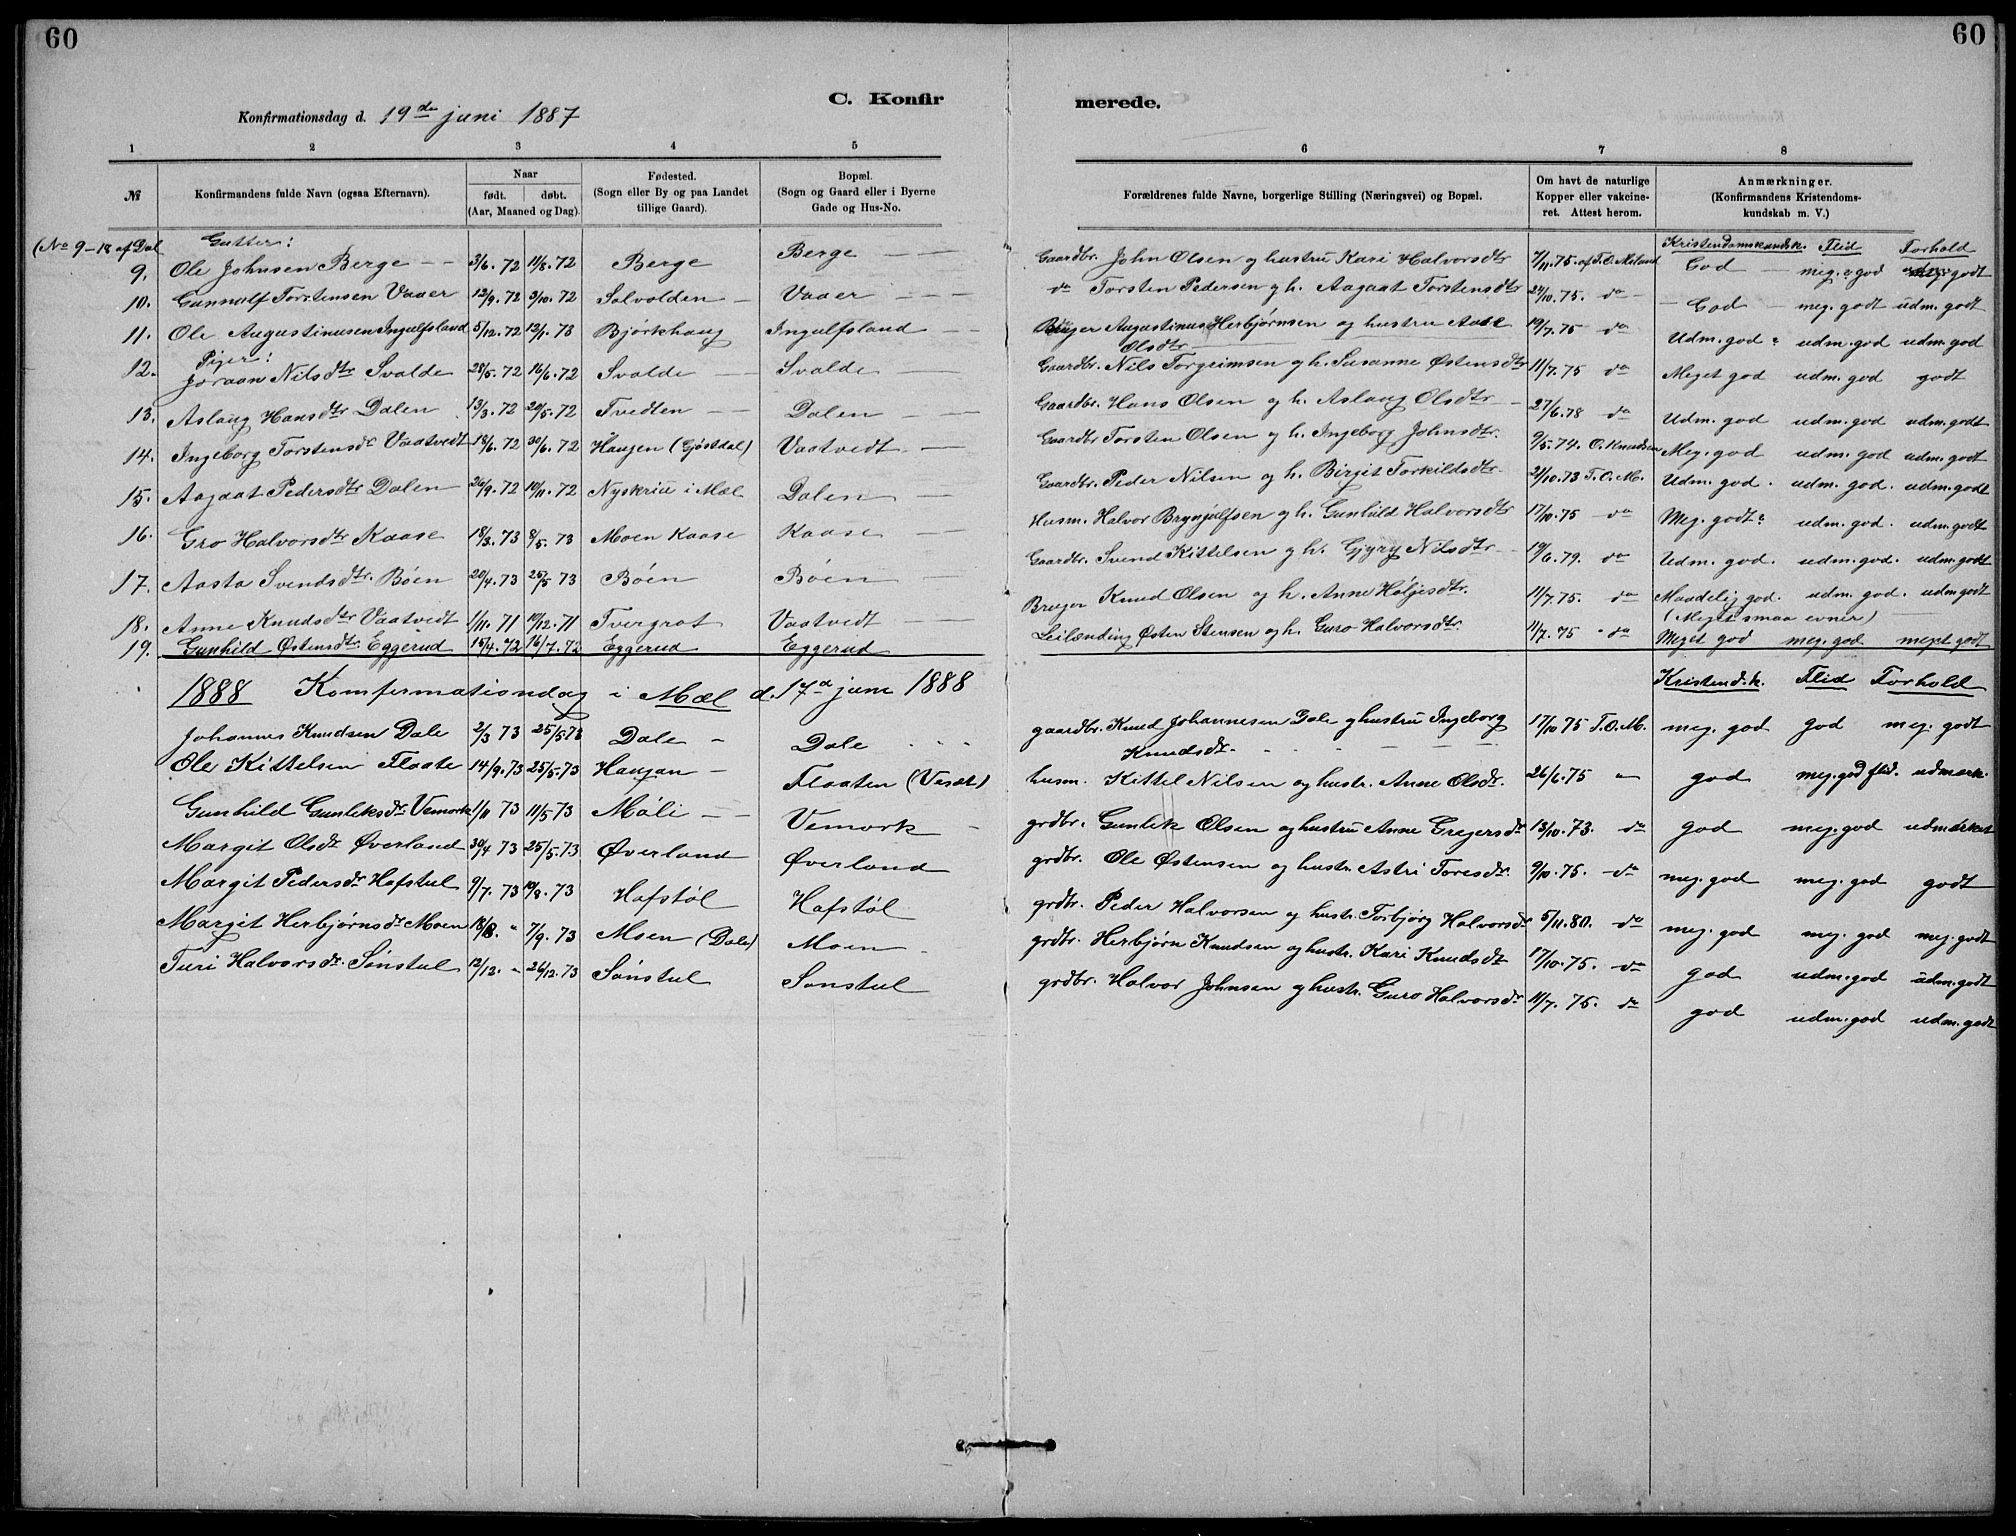 60
60
C. Konfir
merede.
Konfirmationsdag d. 19de juni 1887
1 2 3 4 5
6 7 8
№ Konfirmandens fulde Navn (ogsaa Efternavn). Naar født. døbt. (Aar, Maaned og Dag). Fødested. (Sogn eller By og paa Landet tillige Gaard). Bopæl. (Sogn og Gaard eller i Byerne Gade og Hus-No.
Forældrenes fulde Navne, borgerlige Stilling (Næringsvei) og Bopæl. Om havt de naturlige Kopper eller vakcineret. Attest herom. Anmærkninger. (Konfirmandens Kristendomskundskab m. V.)
(No 9-18 af Dal Gutter: Kristendomskundsk. Flid Forhold
9. Ole Johnsen Berge 3/6.72 11/8.72 Berge Berge Gaardbr. John Olsen og hustru Kari Halvorsdtr 7/11.75. af T.O. Miland God meg. god godt
10. Gunnulf Torstensen Vaaer 12/9.72 3/10.72 Solvolden Vaaer do Torsten Pedersen og h. Aagaat Torstensdtr 24/10.75. do God meg. godt udm. godt
11. Ole Augustinusen Ingulfsland 5/12.72 12/1.73 Bjørkhaug Ingulfsland Bruger Augustinus Herbjørnsen og hustru Aase Olsdtr 19/7.75 do Udm. god udm. god udm. god
Piger:
12. Joraan Nilsdtr Svalde 28/5.72 16/6.72 Svalde Svalde Gaardbr. Nils Torgrimsen og h. Susanne Østensdtr 11/7.75 do Meget god udm. god godt
13. Aslaug Hansdtr Dalen 13/3.72 20/5.72 Tvedten Dalen Gaardbr. Hans Olsen og h. Aslaug Olsdtr 27/6.78 do Udm. god udm. god udm. godt
14. Ingeborg Torstensdr Vaatvedt 18/6.72 30/6.72 Haugen (Gjøstdal) Vaatvedt Gaardbr Torsten Olsen og h. Ingeborg Johnsdtr. 9/5.74. O. Knudsen Meg. god udm. god udm. godt
15. Aagaat Pedersdtr Dalen 26/9.72 10/11.72 Nyskriu i Mæl Dalen Gaardbr. Peder Nilsen og h. Birgit Torkildsdtr 2/10.73 T.O.M. Udm. god. udm. god. udm. godt
16. Gro Halvorsdtr Kaase 18/3.73 8/5.73 Moen Kaase Kaase Husm. Halvor Brynjulfsen og h. Gunhild Halvorsdtr 17/10.75 do Meg. godt udm. god. udm. godt
17. Aasta Svendsdtr. Bøen 20/4.73 25/5 73 Bøen Bøen Gaardbr. Svend Kittelsen og h. Gjyry Nilsdtr 19/6.79. do Udm. god. udm. god. udm. godt
18. Anne Knudsdtr Vaatvedt 1/11.71 10/12.71 Tvergrot Vaatvedt Bruger Knud Olsen og h. Anne Høljesdtr. 11/7.75. do Maadelig god. udm. god. udm godt
(Meget smaa evner)
19. Gunhild Østensdtr. Eggerud 15/4.72 16/7.72 Eggerud Eggerud Leilænding Østen Stensen og h. Guro Halvorsdtr. 11/7.75 do Meget god meg. god meget godt
1888 Komfirmationdag i Mæl d. 17d juni 1888 Kristend.k. Flid Forhold
Johannes Knudsen Dale 2/3 73 25/5 73 Dale Dale gaardbr. Knud Johannesen Dale og hustru Ingeborg Knudsdr. 17/10 75 T.O.M. meg. god god meg. godt
Ole Kittelsen Flaate 14/9.73 25/5.73 Haugan Flaaten (Vesæt) husm. Kittel Nilsen og hustr. Anne Olsdr. 26/6.75 " god meg. god flid. udmærk.
Gunhild Gunleksdr Vemork 1/11 73 11/5 73 Møli Vemork grdbr. Gunlek Olsen og hustru Anne Gregersdr 13/10.73. do god meg. god udmærket
Margit Olsdr Øverland 30/4 73 25/5.73 Øverland Øverland grdbr. Ole Østensen og hustr. Astri Toresdr. 9/10.75. do meg. god meg. god godt
Margit Pedersdr Hafstul 9/7.73 10/8.73 Hafstøl Hafstøl grdbr. Peder Halvorsen og hustr. Torbjørg Halvorsdr 5/11.80. do meg. god meg. god meg. godt
Margit Herbjørnsdr Moen 18/8. " 7/9.73 Moen (Dale) Moen grdbr. Herbjørn Knudsen og hustr. Kari Knudsdr 17/10.75. do god udm. god udm. godt
Turi Halvorsdr. Sønstul 12/12. " 26/12.73 Sønstul Sønstul grdbr. Halvor Johnsen og hustr. Guro Halvorsdr 11/7.75. do god udm. god udm. godt